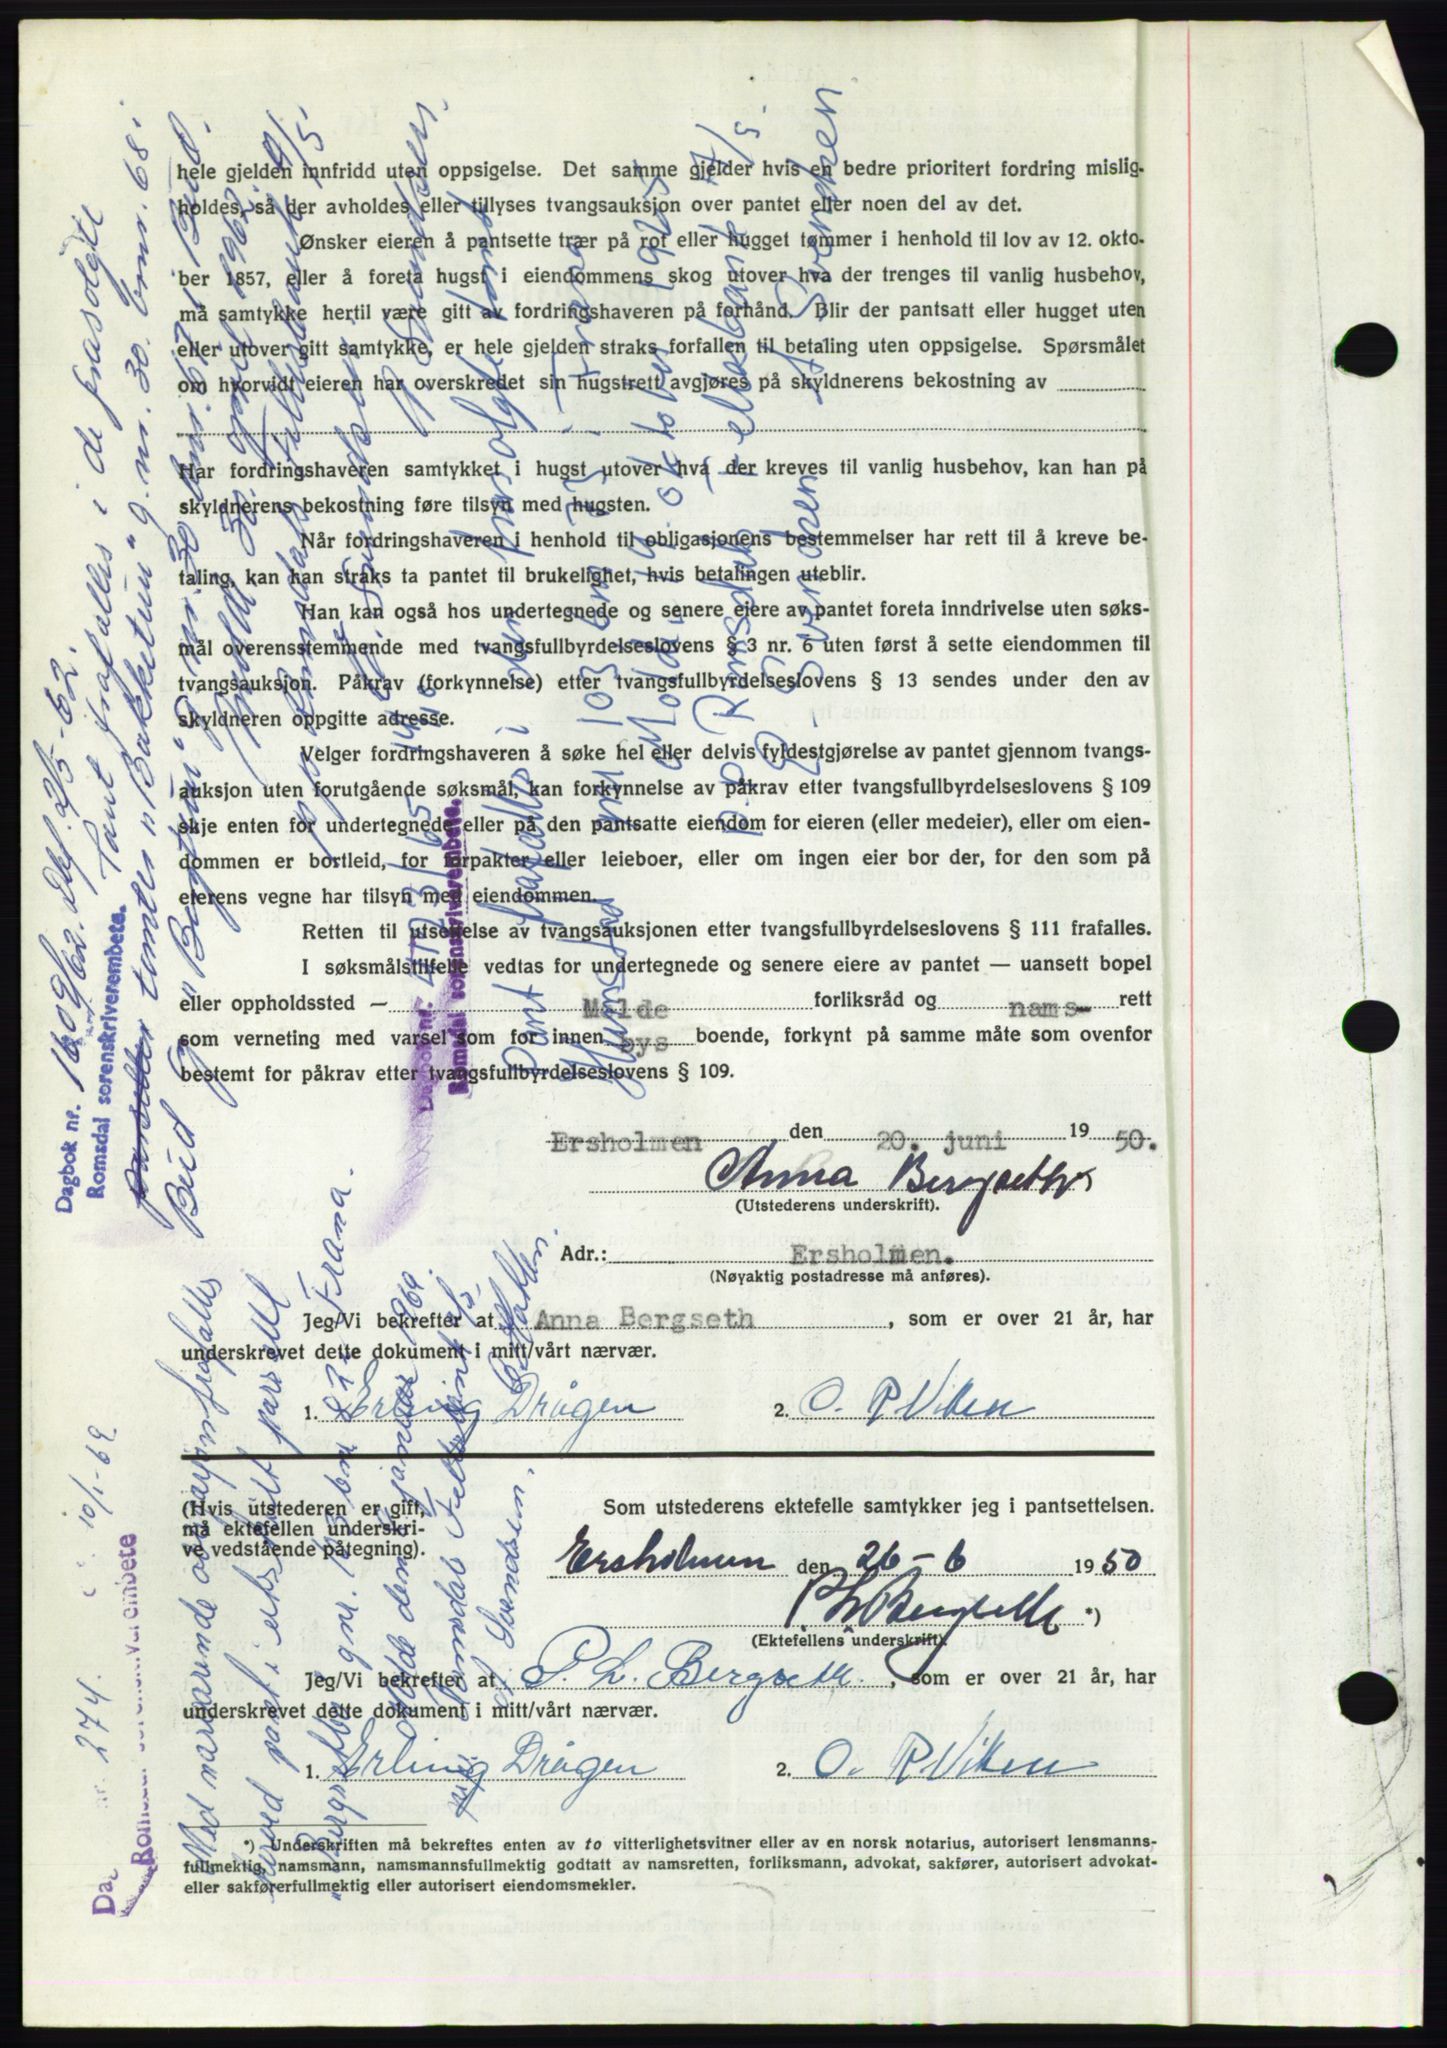 hele gjelden innfridd uten oppsigelse. Det samme gjelder hvis en bedre prioritert fordring mislig-
holdes, så der avholdes eller tillyses tvangsauksjon over pantet eller noen del av det.
Ønsker eieren å pantsette trær på rot eller hugget tømmer i henhold til lov av 12. okto-
ber 1857, eller å foreta hugst i eiendommens skog utover hva der trenges til vanlig husbehov,
må samtykke hertil være gitt av fordringshaveren på forhånd. Blir der pantsatt eller hugget uten
eller utover gitt samtykke, er hele gjelden straks forfallen til betaling uten oppsigelse. Spørsmålet
om hvorvidt eieren har overskredet sin hugstrett avgjøres på skyldnerens bekostning av
Har fordringshaveren samtykket i hugst utover hva der kreves til vanlig husbehov, kan han på
skyldnerens bekostning føre tilsyn med hugsten.
Når fordringshaveren i henhold til obligasjonens bestemmelser har rett til å kreve be-
taling, kan han straks ta pantet til brukelighet, hvis betalingen uteblir.
Han kan også hos undertegnede og senere eiere av pantet foreta inndrivelse uten søks-
mål overensstemmende med tvangsfullbyrdelseslovens § 3 nr. 6 uten først å sette eiendommen til
tvangsauksjon. Påkrav (forkynnelse) etter tvangsfullbyrdelseslovens § 13 sendes under den av
skyldneren oppgitte adresse.
Velger fordringshaveren å søke hel eller delvis fyldestgjørelse av pantet gjennom tvangs-
auksjon uten forutgående søksmål, kan forkynnelse av påkrav etter tvangsfullbyrdelseslovens § 109
skje enten for undertegnede eller på den pantsatte eiendom for eieren (eller medeier), eller om eien-
dommen er bortleid, for forpakter eller leieboer, eller om ingen eier bor der, for den som på
eierens vegne har tilsyn med eiendommen.
Retten til utsettelse av tvangsauksjonen etter tvangsfullbyrdelseslovens § 111 frafalles.
I søksmålstilfelle vedtas for undertegnede og senere eiere av pantet — uansett bopel
eller oppholdssted — Molde forliksråd og nams- rett
som verneting med varsel som for innen bys boende, forkynt på samme måte som ovenfor
bestemt for påkrav etter tvangsfullbyrdelseslovens § 109.
Ersholmen den 20. juni 19 50.
Anna Bergseth
(Utstederens underskrift).
Adr.: Ersholmen.
(Nøyaktig postadresse må anføres).
Jeg/Vi bekrefter at Anna Bergseth, som er over 21 år, har
underskrevet dette dokument i mitt/vårt nærvær.
1. Erling Drågen 2. O. P Viken
(Hvis utstederen er gift,
må ektefellen underskri-
ve vedstående påtegning).
Som utstederens ektefelle samtykker jeg i pantsettelsen.
Ersholmen den 26-6 1950
P L Bergseth *)
(Ektefellens underskrift).
Jeg/Vi bekrefter at P. L. Bergseth, som er over 21 år, har
underskrevet dette dokument i mitt/vårt nærvær.
1. Erling Drågen 2. O. P Viken
*) Underskriften må bekreftes enten av to vitterlighetsvitner eller av en norsk notarius, autorisert lensmanns-
fullmektig, namsmann, namsmannsfullmektig godtatt av namsretten, forliksmann, advokat, sakfører, autorisert advokat-
eller sakførerfullmektig eller autorisert eiendomsmekler.
Dagbok nr. 1609/62
Romsdal sorenskriverembete.
Pant frafalles i de frasolgte
"Bakketun" g.nr. 30. bnr. 68
Bud
Molde 30. april 1962
Dagbok nr. 4723/65
Romsdal sorenskriverembete.
Pant frafalles i den frasolgte tomt
gnr 103 bnr 23 i Fræna
Molde, 19. oktober 1965
p.p. Romsdals Fellesbank A/S
A Svendsen
274. 10/1-69
Romsdal sorenskriverembete
Med nærværende obligasjon frafalles
herved pant i utskilt parsell
gnr. 103 bnr 22 i Fræna.
Molde den januar 1969
Romsdals Fellesbank A/S
A Svendsen.